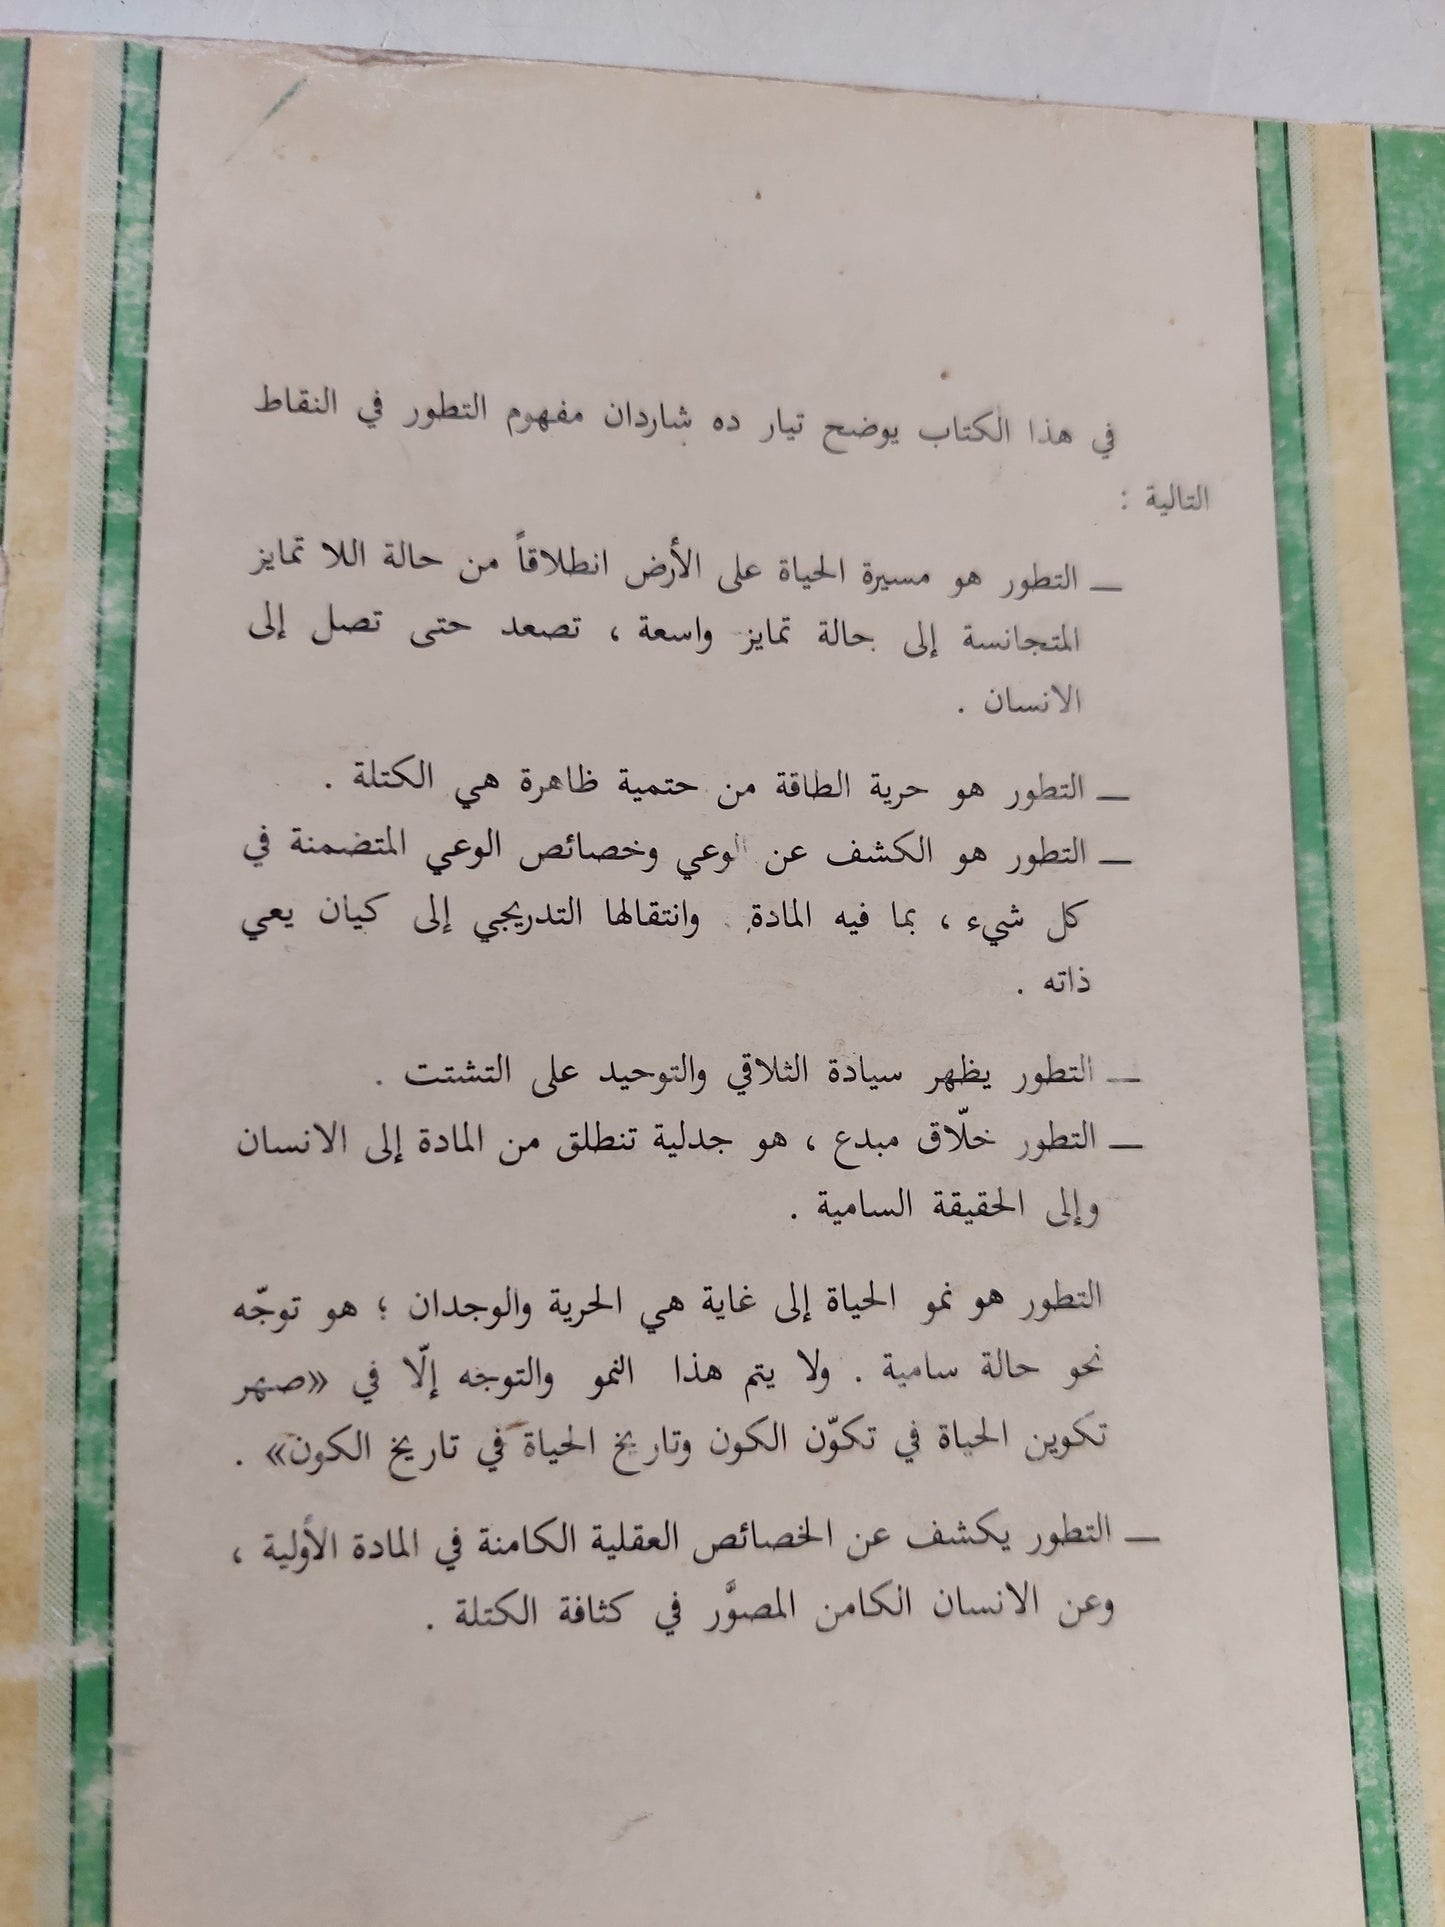 في هذا الكتاب يوضح تيار ده شاردان مفهوم التطور في النقاط
التالية :
ــ التطور هو مسيرة الحياة على الأرض انطلاقاً من حالة اللا تمايز
المتجانسة إلى حالة تمايز واسعة ، تصعد حتى تصل إلى
الانسان .
ــ التطور هو حرية الطاقة من حتمية ظاهرة هي الكتلة .
ــ التطور هو الكشف عن الوعي وخصائص الوعي المتضمنة في
كل شيء ، بما فيه المادة . وانتقالها التدريجي إلى كيان يعي
ذاته .
ــ التطور يظهر سيادة الثلاقي والتوحيد على التشتت .
ــ التطور خلّاق مبدع ، هو جدلية تنطلق من المادة إلى الانسان
وإلى الحقيقة السامية .
التطور هو نمو الحياة إلى غاية هي الحرية والوجدان ؛ هو توجّه
نحو حالة سامية . ولا يتم هذا النمو والتوجه إلّا في «صهر
تكوين الحياة في تكوّن الكون وتاريخ الحياة في تاريخ الكون» .
ــ التطور يكشف عن الخصائص العقلية الكامنة في المادة الأولية ،
وعن الانسان الكامن المصوَّر في كثافة الكتلة .